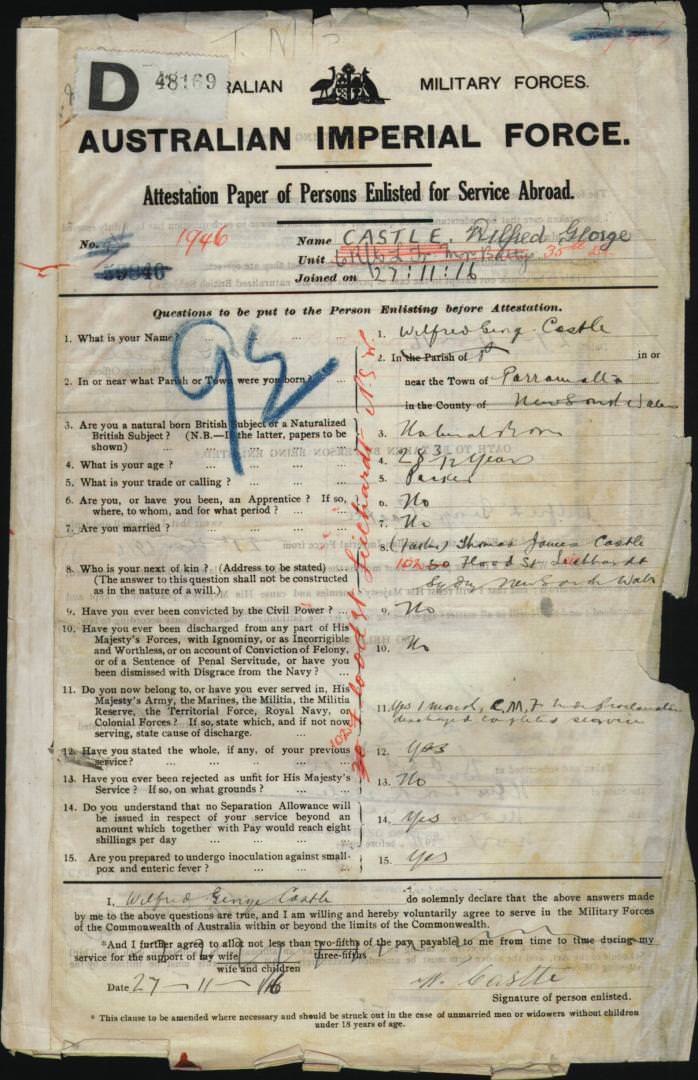 D 48169
AUSTRALIAN MILITARY FORCES.
AUSTRALIAN IMPERIAL FORCE.
Attestation Paper of Persons Enlisted for Service Abroad.
No. 1946
39846
Name CASTLE. Wilfred George
Unit 35th Bn
Joined on 27:11:16
Questions to be put to the Person Enlisting before Attestation.
92
1. What is your Name? ... ... ...
1. Wilfred George Castle
2. In or near what Parish or Town were you born? ...
2. In the Parish of in or
near the Town of Parramatta
in the County of New South Wales
3. Are you a natural born British Subject or a Naturalized
British Subject? (N.B.—If the latter, papers to be
shown) ... ... ... ...
3. Natural Born
4. What is your age? ... ... ... ...
4. 28 3/12 Years
5. What is your trade or calling? ... ... ...
5.
6. Are you, or have you been, an Apprentice? If so,
where, to whom, and for what period? ... ...
6. No
7. Are you married? ... ... ... ...
7. No
8. Who is your next of kin? (Address to be stated) ...
(The answer to this question shall not be constructed
as in the nature of a will.)
8. (Father) Thomas James Castle
102 Flood St Leichhardt
Sydney New South Wales
102 Flood St Leichhardt N.S.W.
9. Have you ever been convicted by the Civil Power? ...
9. No
10. Have you ever been discharged from any part of His
Majesty's Forces, with Ignominy, or as Incorrigible
and Worthless, or on account of Conviction of Felony,
or of a Sentence of Penal Servitude, or have you
been dismissed with Disgrace from the Navy? ...
10. No
11. Do you now belong to, or have you ever served in, His
Majesty's Army, the Marines, the Militia, the Militia
Reserve, the Territorial Force, Royal Navy, or
Colonial Forces? If so, state which, and if not now
serving, state cause of discharge. ... ...
11. Yes 1 month, C.M.F. Under Proclamation
discharged completed service
12. Have you stated the whole, if any, of your previous
service? ... ... ... ... ...
12. Yes
13. Have you ever been rejected as unfit for His Majesty's
Service? If so, on what grounds? ... ...
13. No
14. Do you understand that no Separation Allowance will
be issued in respect of your service beyond an
amount which together with Pay would reach eight
shillings per day ... ... ... ...
14. Yes
15. Are you prepared to undergo inoculation against small-
pox and enteric fever? ... ... ...
15. Yes
I, Wilfred George Castle do solemnly declare that the above answers made
by me to the above questions are true, and I am willing and hereby voluntarily agree to serve in the Military Forces
of the Commonwealth of Australia within or beyond the limits of the Commonwealth.
*And I further agree to allot not less than two-fifths of the pay payable to me from time to time during my
three-fifths
service for the support of my wife
wife and children
Date 27-11-16
W. Castle
Signature of person enlisted.
* This clause to be amended where necessary and should be struck out in the case of unmarried men or widowers without children
under 18 years of age.